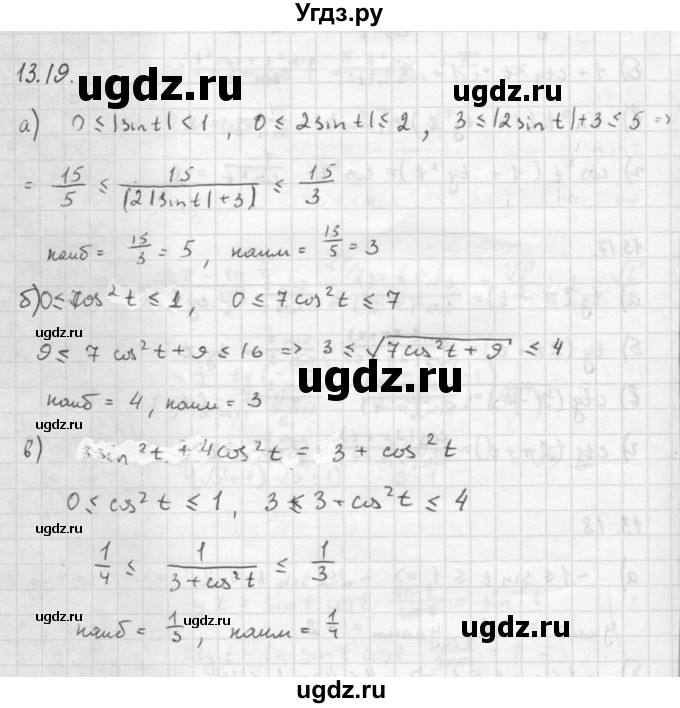 Угдз.ру
13.19.
ugdz.ru
а) 0 ≤ |sint| < 1, 0 ≤ 2sint| ≤ 2, 3 ≤ |2sint|+3 ≤ 5 =>
= 15/5 ≤ 15/(2|sint|+3) ≤ 15/3
наиб = 15/3 = 5, наим = 15/5 = 3
б) 0 ≤ cos²t ≤ 1, 0 ≤ 7cos²t ≤ 7
ugdz.ru
9 ≤ 7cos²t + 9 ≤ 16 => 3 ≤ √(7cos²t + 9) ≤ 4
ugdz.ru
наиб = 4, наим = 3
ugdz.ru
в) 3sin²t + 4cos²t = 3 + cos²t
0 ≤ cos²t ≤ 1, 3 ≤ 3 + cos²t ≤ 4
ugdz.ru
1/4 ≤ 1/(3 + cos²t) ≤ 1/3
ugdz.ru
наиб = 1/3, наим = 1/4
ugdz.ru
ugdz.ru
ugdz.ru